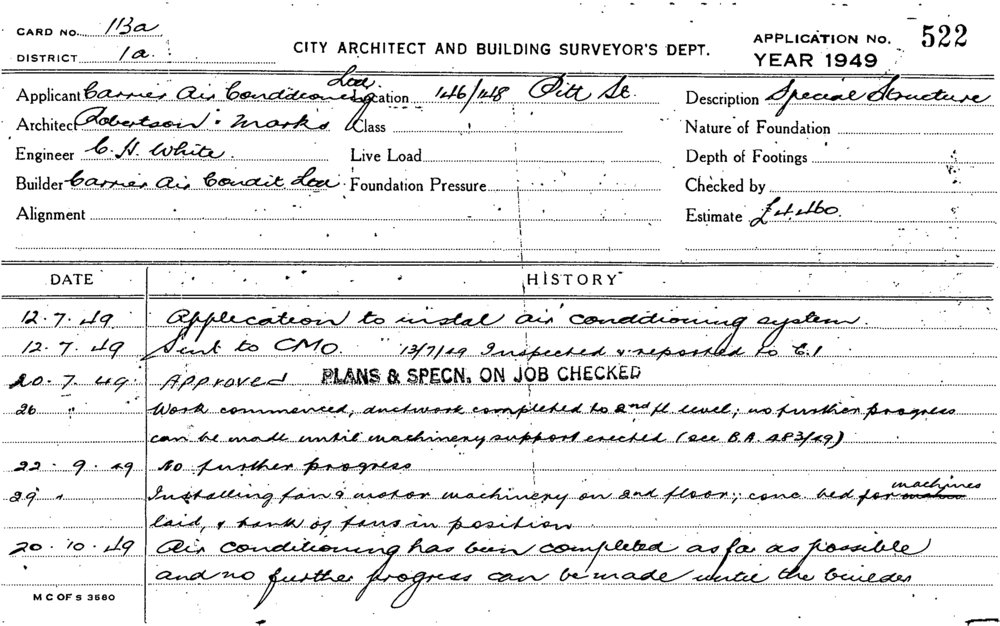 CARD No. 113a
DISTRICT 1a
CITY ARCHITECT AND BUILDING SURVEYOR'S DEPT.
APPLICATION No. 522
YEAR 1949
Applicant Carrier Air Conditioning Ltd. Location 146/148 Pitt St. Description Special Structure
Architect Robertson & Marks Class Nature of Foundation
Engineer C. H. White. Live Load Depth of Footings
Builder Carrier Air Condit Ltd. Foundation Pressure Checked by
Alignment Estimate £4,460.
DATE HISTORY
12.7.49 Application to instal air conditioning system.
12.7.49 Sent to CMO. 13/7/49 Inspected & reported to C.I
20.7.49 Approved PLANS & SPECN. ON JOB CHECKED
26 " Work commenced, ductwork completed to 2nd fl level; no further progress
can be made until machinery support erected (see B.A. 483/49)
22.9.49 No further progress
29 " Installing fan & motor machinery on 2nd floor; conc. bed for machines
laid, & bank of fans in position
20.10.49 Air conditioning has been completed as far as possible
and no further progress can be made until the builder
M C OF S 3580